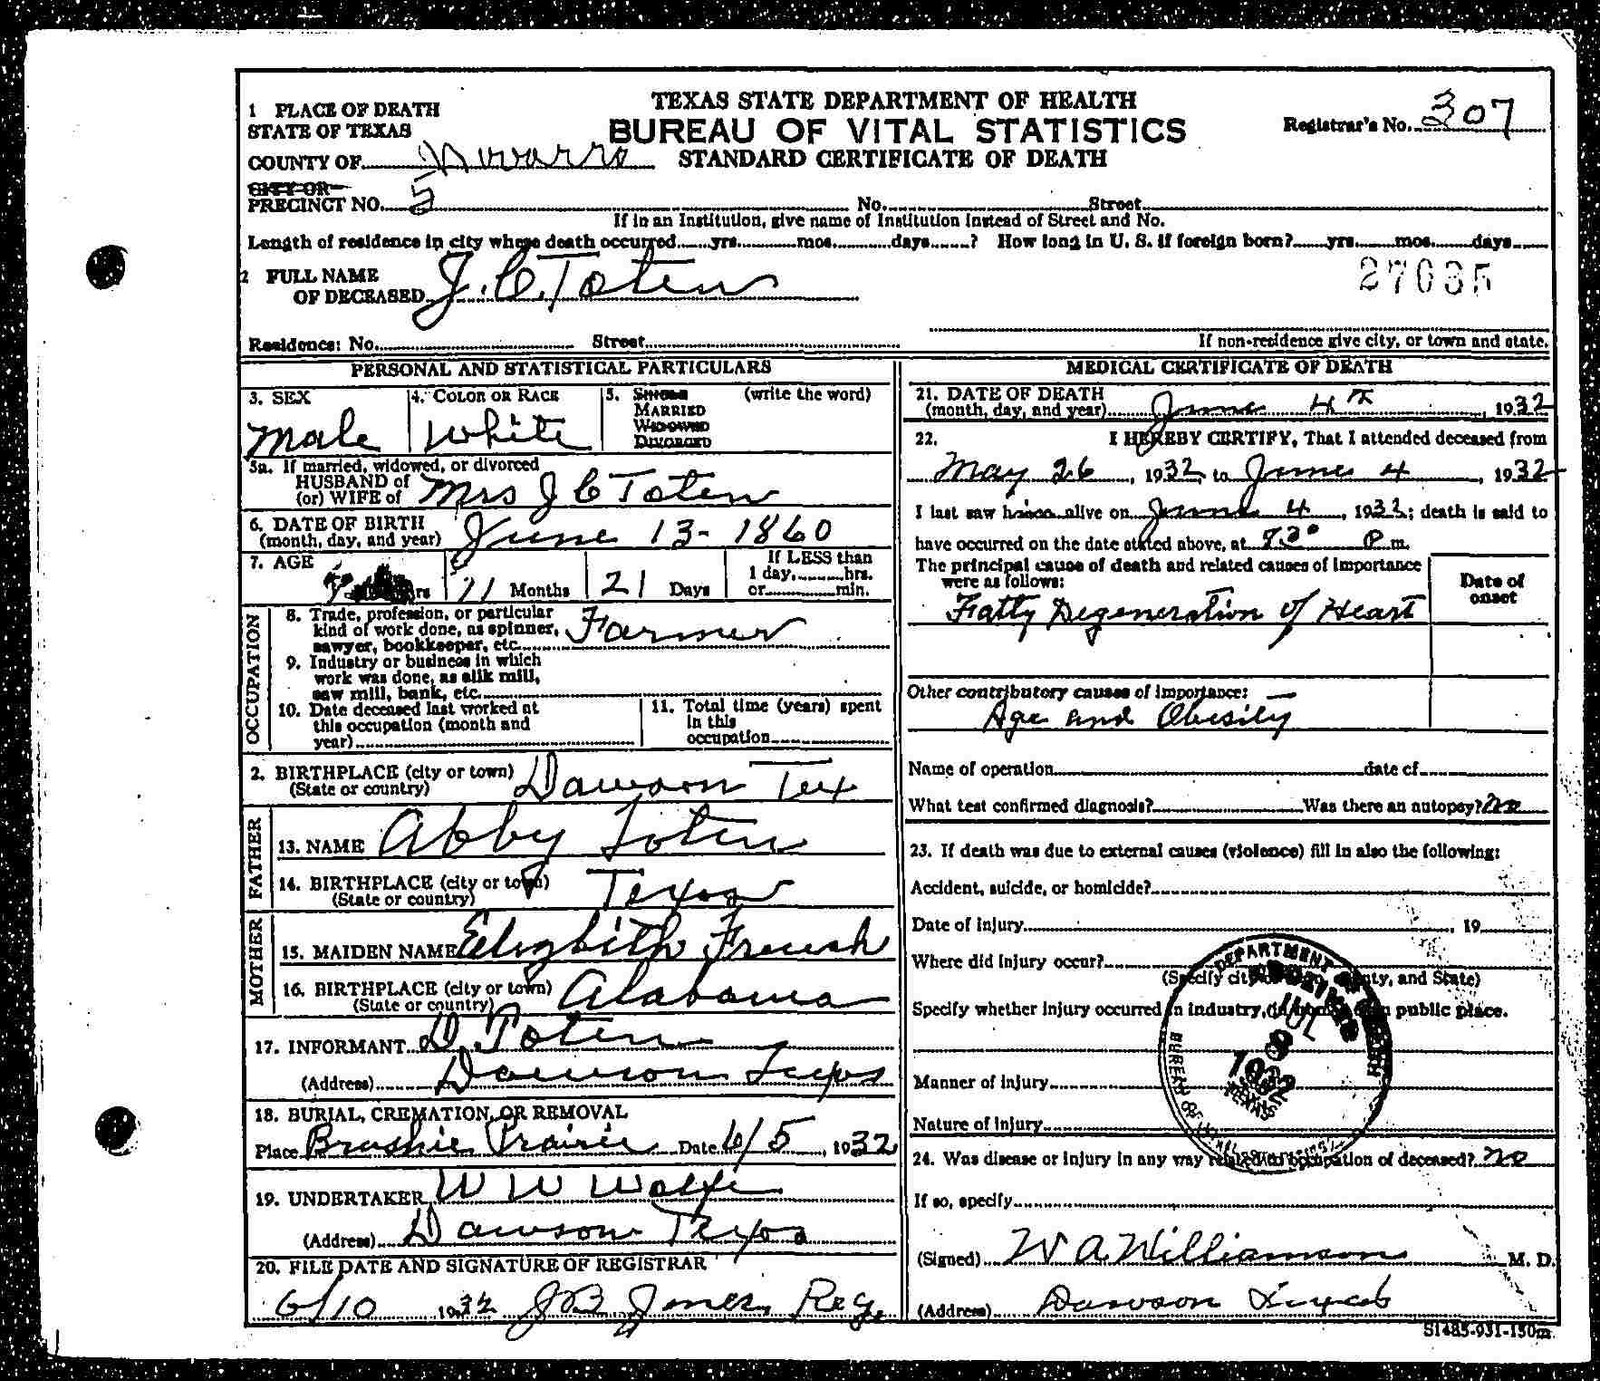 TEXAS STATE DEPARTMENT OF HEALTH
BUREAU OF VITAL STATISTICS
STANDARD CERTIFICATE OF DEATH
Registrar's No. 307
1 PLACE OF DEATH
STATE OF TEXAS
COUNTY OF Navarro
CITY OR
PRECINCT NO. 5 No. Street
If in an Institution, give name of Institution instead of Street and No.
Length of residence in city where death occurred yrs. mos. days ? How long in U. S. if foreign born? yrs. mos. days
2 FULL NAME
OF DECEASED J. C. Toten
27035
Residence: No. Street
If non-residence give city, or town and state.
PERSONAL AND STATISTICAL PARTICULARS
3. SEX
Male
4. COLOR OR RACE
White
5. SINGLE (write the word)
MARRIED
WIDOWED
DIVORCED
5a. If married, widowed, or divorced
HUSBAND of
(or) WIFE of Mrs J C Toten
6. DATE OF BIRTH
(month, day, and year) June 13- 1860
7. AGE
rs 11 Months 21 Days
If LESS than
1 day, hrs.
or min.
OCCUPATION
8. Trade, profession, or particular
kind of work done, as spinner, Farmer
sawyer, bookkeeper, etc.
9. Industry or business in which
work was done, as silk mill,
saw mill, bank, etc.
10. Date deceased last worked at
this occupation (month and
year)
11. Total time (years) spent
in this
occupation
2. BIRTHPLACE (city or town) Dawson Tex
(State or country)
FATHER
13. NAME Abby Toten
14. BIRTHPLACE (city or town) Texas
(State or country)
MOTHER
15. MAIDEN NAME Elizbith
16. BIRTHPLACE (city or town) Alabama
(State or country)
17. INFORMANT D. Toten
(Address) Dawson Texas
18. BURIAL, CREMATION, OR REMOVAL
Place Brushie Prairie Date 6/5, 1932
19. UNDERTAKER W W Wolfe
(Address) Dawson Texas
20. FILE DATE AND SIGNATURE OF REGISTRAR
6/10 1932 J B Jones Reg.
MEDICAL CERTIFICATE OF DEATH
21. DATE OF DEATH
(month, day, and year) June 4th, 1932
22. I HEREBY CERTIFY, That I attended deceased from
May 26, 1932, to June 4, 1932
I last saw him alive on June 4, 1932; death is said to
have occurred on the date stated above, at 830 P m.
The principal cause of death and related causes of importance
were as follows:
Date of
onset
Fatty Degeneration of Heart
Other contributory causes of importance:
Age and Obesity
Name of operation date of
What test confirmed diagnosis? Was there an autopsy? no
23. If death was due to external causes (violence) fill in also the following:
Accident, suicide, or homicide?
Date of injury , 19
Where did injury occur?
(Specify city nty, and State)
Specify whether injury occurred in industry, public place.
Manner of injury
Nature of injury
DEPARTMENT OF
BUREAU OF
JUL
9
1932
TEXAS
24. Was disease or injury in any way related to occupation of deceased? no
If so, specify
(Signed) W A Williamson M. D.
(Address) Dawson Texas
S1485-931-150m